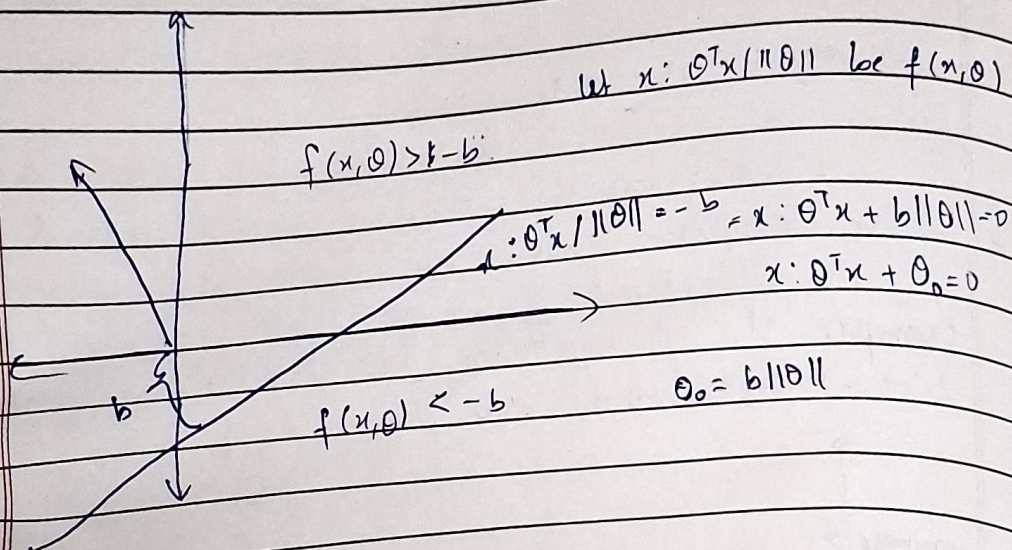 let x: θᵀx/||θ|| be f(x,θ)
f(x,θ) > -b
x: θᵀx/||θ|| = -b = x: θᵀx + b||θ|| = 0
x: θᵀx + θ₀ = 0
b
f(x,θ) < -b
θ₀ = b||θ||